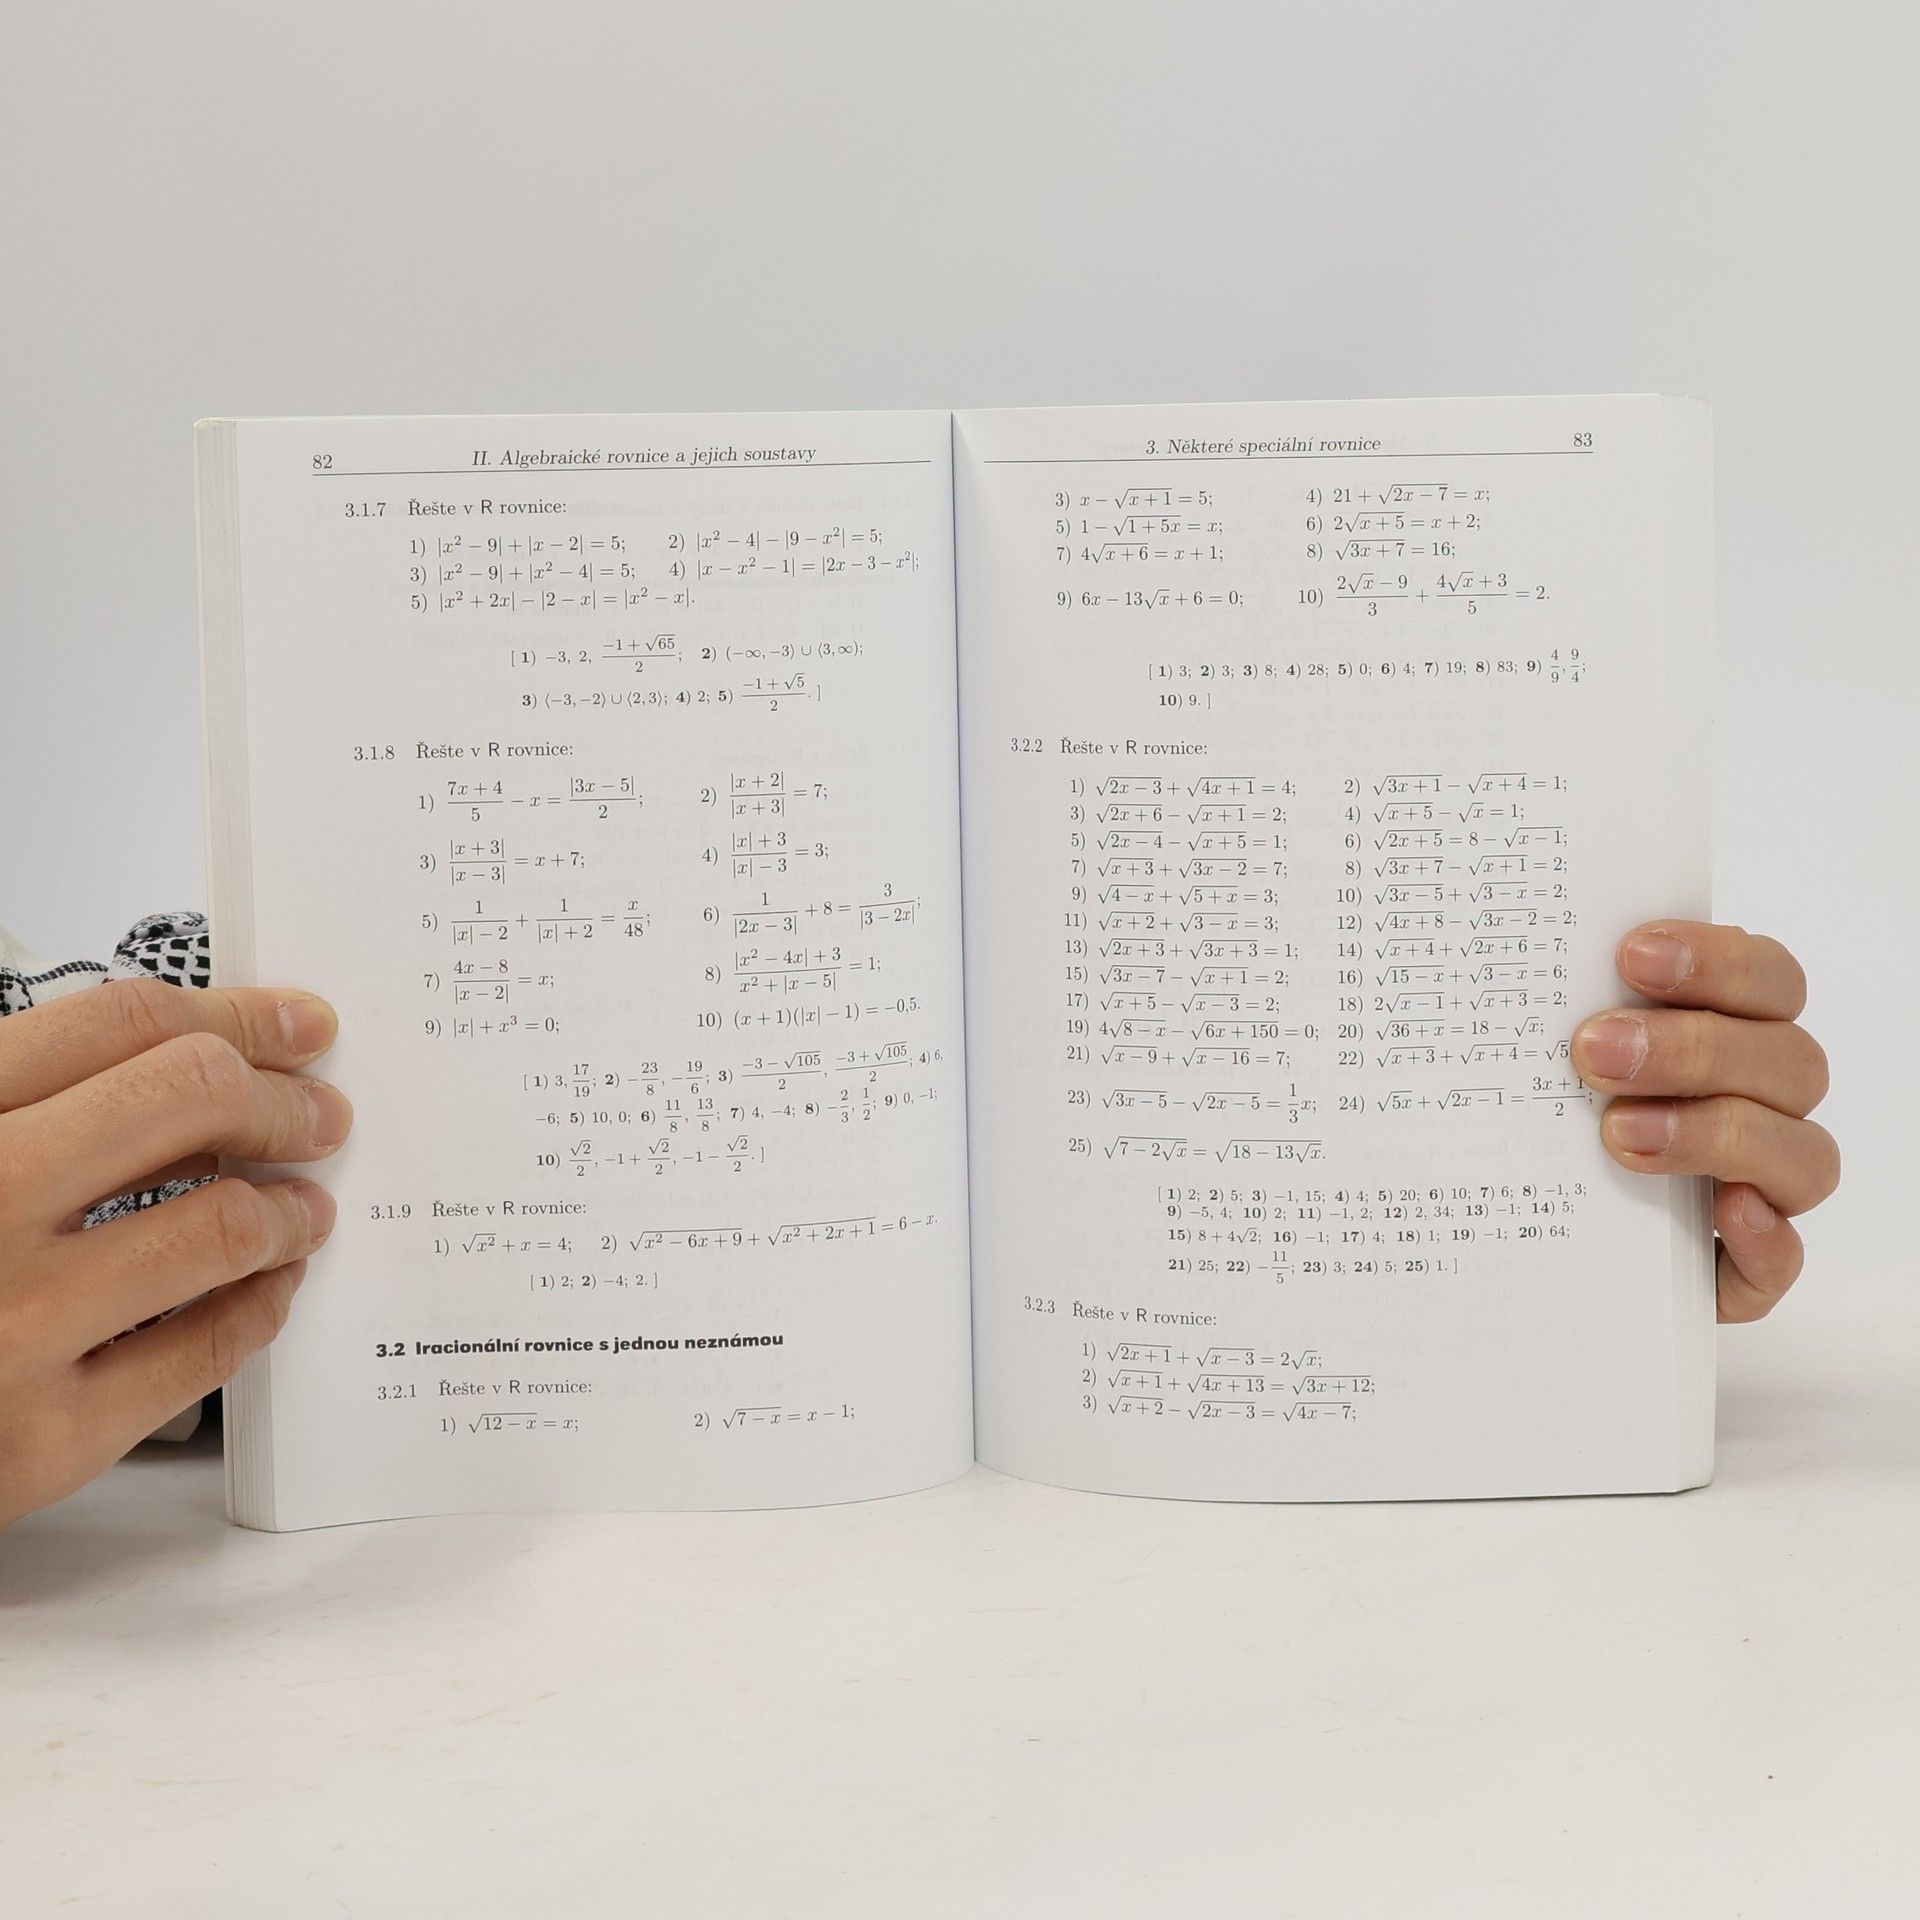 82 II. Algebraické rovnice a jejich soustavy
3.1.7 Řešte v R rovnice:
1) |x² − 9| + |x − 2| = 5; 2) |x² − 4| − |9 − x²| = 5;
3) |x² − 9| + |x² − 4| = 5; 4) |x − x² − 1| = |2x − 3 − x²|;
5) |x² + 2x| − |2 − x| = |x² − x|.
[ 1) −3, 2, (−1 + √65)/2; 2) (−∞, −3⟩ ∪ ⟨3, ∞);
3) ⟨−3, −2⟩ ∪ ⟨2, 3⟩; 4) 2; 5) (−1 + √5)/2. ]
3.1.8 Řešte v R rovnice:
1) (7x + 4)/5 − x = |3x − 5|/2; 2) |x + 2|/|x + 3| = 7;
3) |x + 3|/|x − 3| = x + 7; 4) (|x| + 3)/(|x| − 3) = 3;
5) 1/(|x| − 2) + 1/(|x| + 2) = x/48; 6) 1/|2x − 3| + 8 = 3/|3 − 2x|;
7) (4x − 8)/|x − 2| = x; 8) (|x² − 4x| + 3)/(x² + |x − 5|) = 1;
9) |x| + x³ = 0; 10) (x + 1)(|x| − 1) = −0,5.
[ 1) 3, 17/19; 2) −23/8, −19/6; 3) (−3 − √105)/2, (−3 + √105)/2; 4) 6,
−6; 5) 10, 0; 6) 11/8, 13/8; 7) 4, −4; 8) −2/3, 1/2; 9) 0, −1;
10) √2/2, −1 + √2/2, −1 − √2/2. ]
3.1.9 Řešte v R rovnice:
1) √(x²) + x = 4; 2) √(x² − 6x + 9) + √(x² + 2x + 1) = 6 − x.
[ 1) 2; 2) −4; 2. ]
3.2 Iracionální rovnice s jednou neznámou
3.2.1 Řešte v R rovnice:
1) √(12 − x) = x; 2) √(7 − x) = x − 1;
3. Některé speciální rovnice 83
3) x − √(x + 1) = 5; 4) 21 + √(2x − 7) = x;
5) 1 − √(1 + 5x) = x; 6) 2√(x + 5) = x + 2;
7) 4√(x + 6) = x + 1; 8) √(3x + 7) = 16;
9) 6x − 13√x + 6 = 0; 10) (2√x − 9)/3 + (4√x + 3)/5 = 2.
[ 1) 3; 2) 3; 3) 8; 4) 28; 5) 0; 6) 4; 7) 19; 8) 83; 9) 4/9, 9/4;
10) 9. ]
3.2.2 Řešte v R rovnice:
1) √(2x − 3) + √(4x + 1) = 4; 2) √(3x + 1) − √(x + 4) = 1;
3) √(2x + 6) − √(x + 1) = 2; 4) √(x + 5) − √x = 1;
5) √(2x − 4) − √(x + 5) = 1; 6) √(2x + 5) = 8 − √(x − 1);
7) √(x + 3) + √(3x − 2) = 7; 8) √(3x + 7) − √(x + 1) = 2;
9) √(4 − x) + √(5 + x) = 3; 10) √(3x − 5) + √(3 − x) = 2;
11) √(x + 2) + √(3 − x) = 3; 12) √(4x + 8) − √(3x − 2) = 2;
13) √(2x + 3) + √(3x + 3) = 1; 14) √(x + 4) + √(2x + 6) = 7;
15) √(3x − 7) − √(x + 1) = 2; 16) √(15 − x) + √(3 − x) = 6;
17) √(x + 5) − √(x − 3) = 2; 18) 2√(x − 1) + √(x + 3) = 2;
19) 4√(8 − x) − √(6x + 150) = 0; 20) √(36 + x) = 18 − √x;
21) √(x − 9) + √(x − 16) = 7; 22) √(x + 3) + √(x + 4) = √5
23) √(3x − 5) − √(2x − 5) = 1/3 x; 24) √(5x) + √(2x − 1) = (3x + 1)/2;
25) √(7 − 2√x) = √(18 − 13√x).
[ 1) 2; 2) 5; 3) −1, 15; 4) 4; 5) 20; 6) 10; 7) 6; 8) −1, 3;
9) −5, 4; 10) 2; 11) −1, 2; 12) 2, 34; 13) −1; 14) 5;
15) 8 + 4√2; 16) −1; 17) 4; 18) 1; 19) −1; 20) 64;
21) 25; 22) −11/5; 23) 3; 24) 5; 25) 1. ]
3.2.3 Řešte v R rovnice:
1) √(2x + 1) + √(x − 3) = 2√x;
2) √(x + 1) + √(4x + 13) = √(3x + 12);
3) √(x + 2) − √(2x − 3) = √(4x − 7);